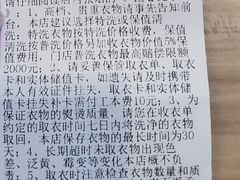 请仔细阅读店内须知
1、高档、贵重衣物请事先告知前
台，本店建议选择特洗或保值清
洗，特洗衣物按特洗价格收费，保值
清洗按普洗价格另加收衣物价值5%保
值费用，门店普洗衣物最高赔偿限额
2000元；2、请妥善保管以收衣单、取衣
卡和实体储值卡，如遗失请及时携带
本人有效证件挂失，取衣卡和实体储
值卡挂失补卡需付工本费10元；3、为
保证衣物的熨烫质量，请您在收衣单
约定的取衣时间七日内将洗净的衣物
取回，本店保存衣物的最长时间为30
天；4、长期超时未取衣物出现色
差、泛黄、霉变等变化本店概不负
责；5、取衣时注意检查衣物数量和质